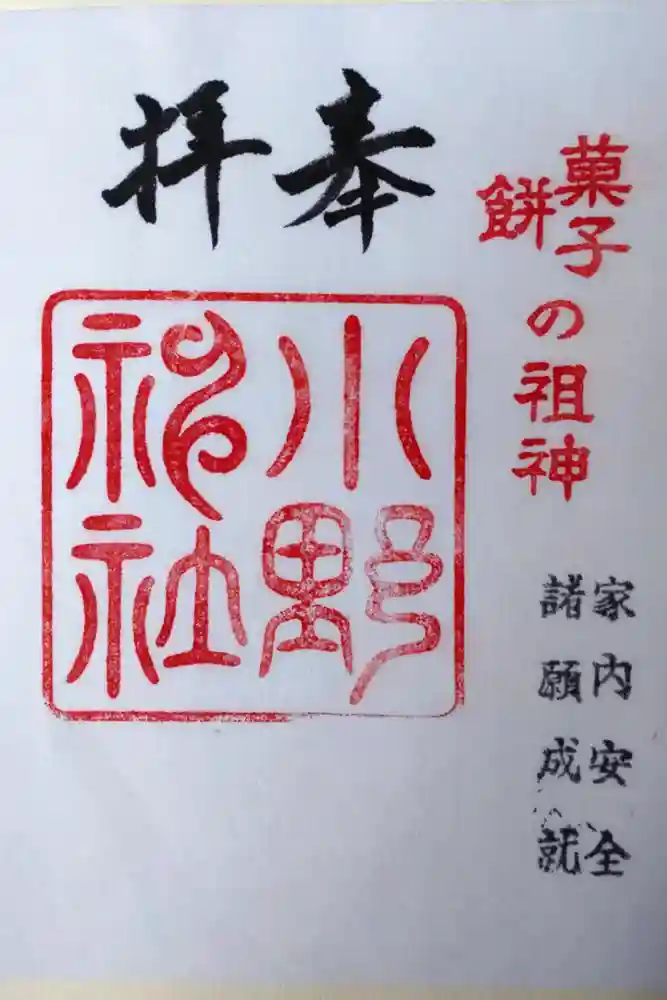 奉拝
菓子
餅
の祖神
家内安全
諸願成就
小野
神社